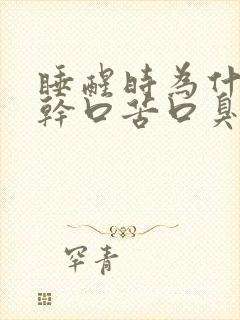 睡醒時為什
幹口苦口臭
罕青